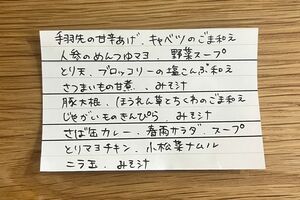 手羽先の甘辛あげ、キャベツのごま和え
人参のめんつゆマヨ、野菜スープ
とり天、ブロッコリーの塩こんぶ和え
さつまいもの甘煮、みそ汁
豚大根、ほうれん草とちくわのごま和え
じゃがいものきんぴら みそ汁
さば缶カレー、春雨サラダ、スープ
とりマヨチキン、小松菜ナムル
ニラ玉、みそ汁